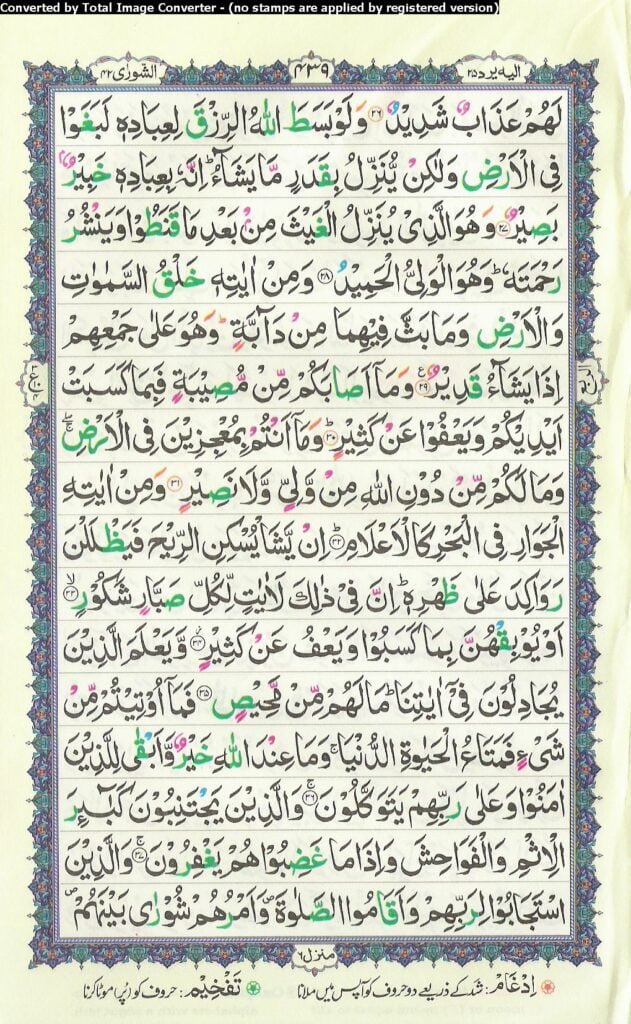 Converted by Total Image Converter - (no stamps are applied by registered version)
الیه یرد ۲۵
۴۳۹
الشوری ۴۲
لَهُمْ عَذَابٌ شَدِیْدٌ ﴿۲۶﴾ وَلَوْ بَسَطَ اللّٰهُ الرِّزْقَ لِعِبَادِهٖ لَبَغَوْا
فِی الْاَرْضِ وَلٰكِنْ یُّنَزِّلُ بِقَدَرٍ مَّا یَشَآءُ ؕ اِنَّهٗ بِعِبَادِهٖ خَبِیْرٌۢ
بَصِیْرٌ ﴿۲۷﴾ وَهُوَ الَّذِیْ یُنَزِّلُ الْغَیْثَ مِنْۢ بَعْدِ مَا قَنَطُوْا وَیَنْشُرُ
رَحْمَتَهٗ ؕ وَهُوَ الْوَلِیُّ الْحَمِیْدُ ﴿۲۸﴾ وَمِنْ اٰیٰتِهٖ خَلْقُ السَّمٰوٰتِ
وَالْاَرْضِ وَمَا بَثَّ فِیْهِمَا مِنْ دَآبَّةٍ ؕ وَهُوَ عَلٰی جَمْعِهِمْ
اِذَا یَشَآءُ قَدِیْرٌ ﴿۲۹﴾ ع وَمَاۤ اَصَابَكُمْ مِّنْ مُّصِیْبَةٍ فَبِمَا كَسَبَتْ
اَیْدِیْكُمْ وَیَعْفُوْا عَنْ كَثِیْرٍ ﴿۳۰﴾ؕ وَمَاۤ اَنْتُمْ بِمُعْجِزِیْنَ فِی الْاَرْضِ ۖۚ
وَمَا لَكُمْ مِّنْ دُوْنِ اللّٰهِ مِنْ وَّلِیٍّ وَّلَا نَصِیْرٍ ﴿۳۱﴾ وَمِنْ اٰیٰتِهِ
الْجَوَارِ فِی الْبَحْرِ كَالْاَعْلَامِ ﴿۳۲﴾ؕ اِنْ یَّشَاْ یُسْكِنِ الرِّیْحَ فَیَظْلَلْنَ
رَوَاكِدَ عَلٰی ظَهْرِهٖ ؕ اِنَّ فِیْ ذٰلِكَ لَاٰیٰتٍ لِّكُلِّ صَبَّارٍ شَكُوْرٍ ﴿۳۳﴾ۙ
اَوْ یُوْبِقْهُنَّ بِمَا كَسَبُوْا وَیَعْفُ عَنْ كَثِیْرٍ ﴿۳۴﴾ وَّیَعْلَمَ الَّذِیْنَ
یُجَادِلُوْنَ فِیْۤ اٰیٰتِنَا ؕ مَا لَهُمْ مِّنْ مَّحِیْصٍ ﴿۳۵﴾ فَمَاۤ اُوْتِیْتُمْ مِّنْ
شَیْءٍ فَمَتَاعُ الْحَیٰوةِ الدُّنْیَا ۚ وَمَا عِنْدَ اللّٰهِ خَیْرٌ وَّاَبْقٰی لِلَّذِیْنَ
اٰمَنُوْا وَعَلٰی رَبِّهِمْ یَتَوَكَّلُوْنَ ﴿۳۶﴾ۚ وَالَّذِیْنَ یَجْتَنِبُوْنَ كَبٰٓىِٕرَ
الْاِثْمِ وَالْفَوَاحِشَ وَاِذَا مَا غَضِبُوْا هُمْ یَغْفِرُوْنَ ﴿۳۷﴾ۚ وَالَّذِیْنَ
اسْتَجَابُوْا لِرَبِّهِمْ وَاَقَامُوا الصَّلٰوةَ ۪ وَاَمْرُهُمْ شُوْرٰی بَیْنَهُمْ ۪
منزل ۶
اِدْغَام: شد کے ذریعے دو حروف کو آپس میں ملانا
تَفْخِیْم: حروف کو (پُر) موٹا کرنا